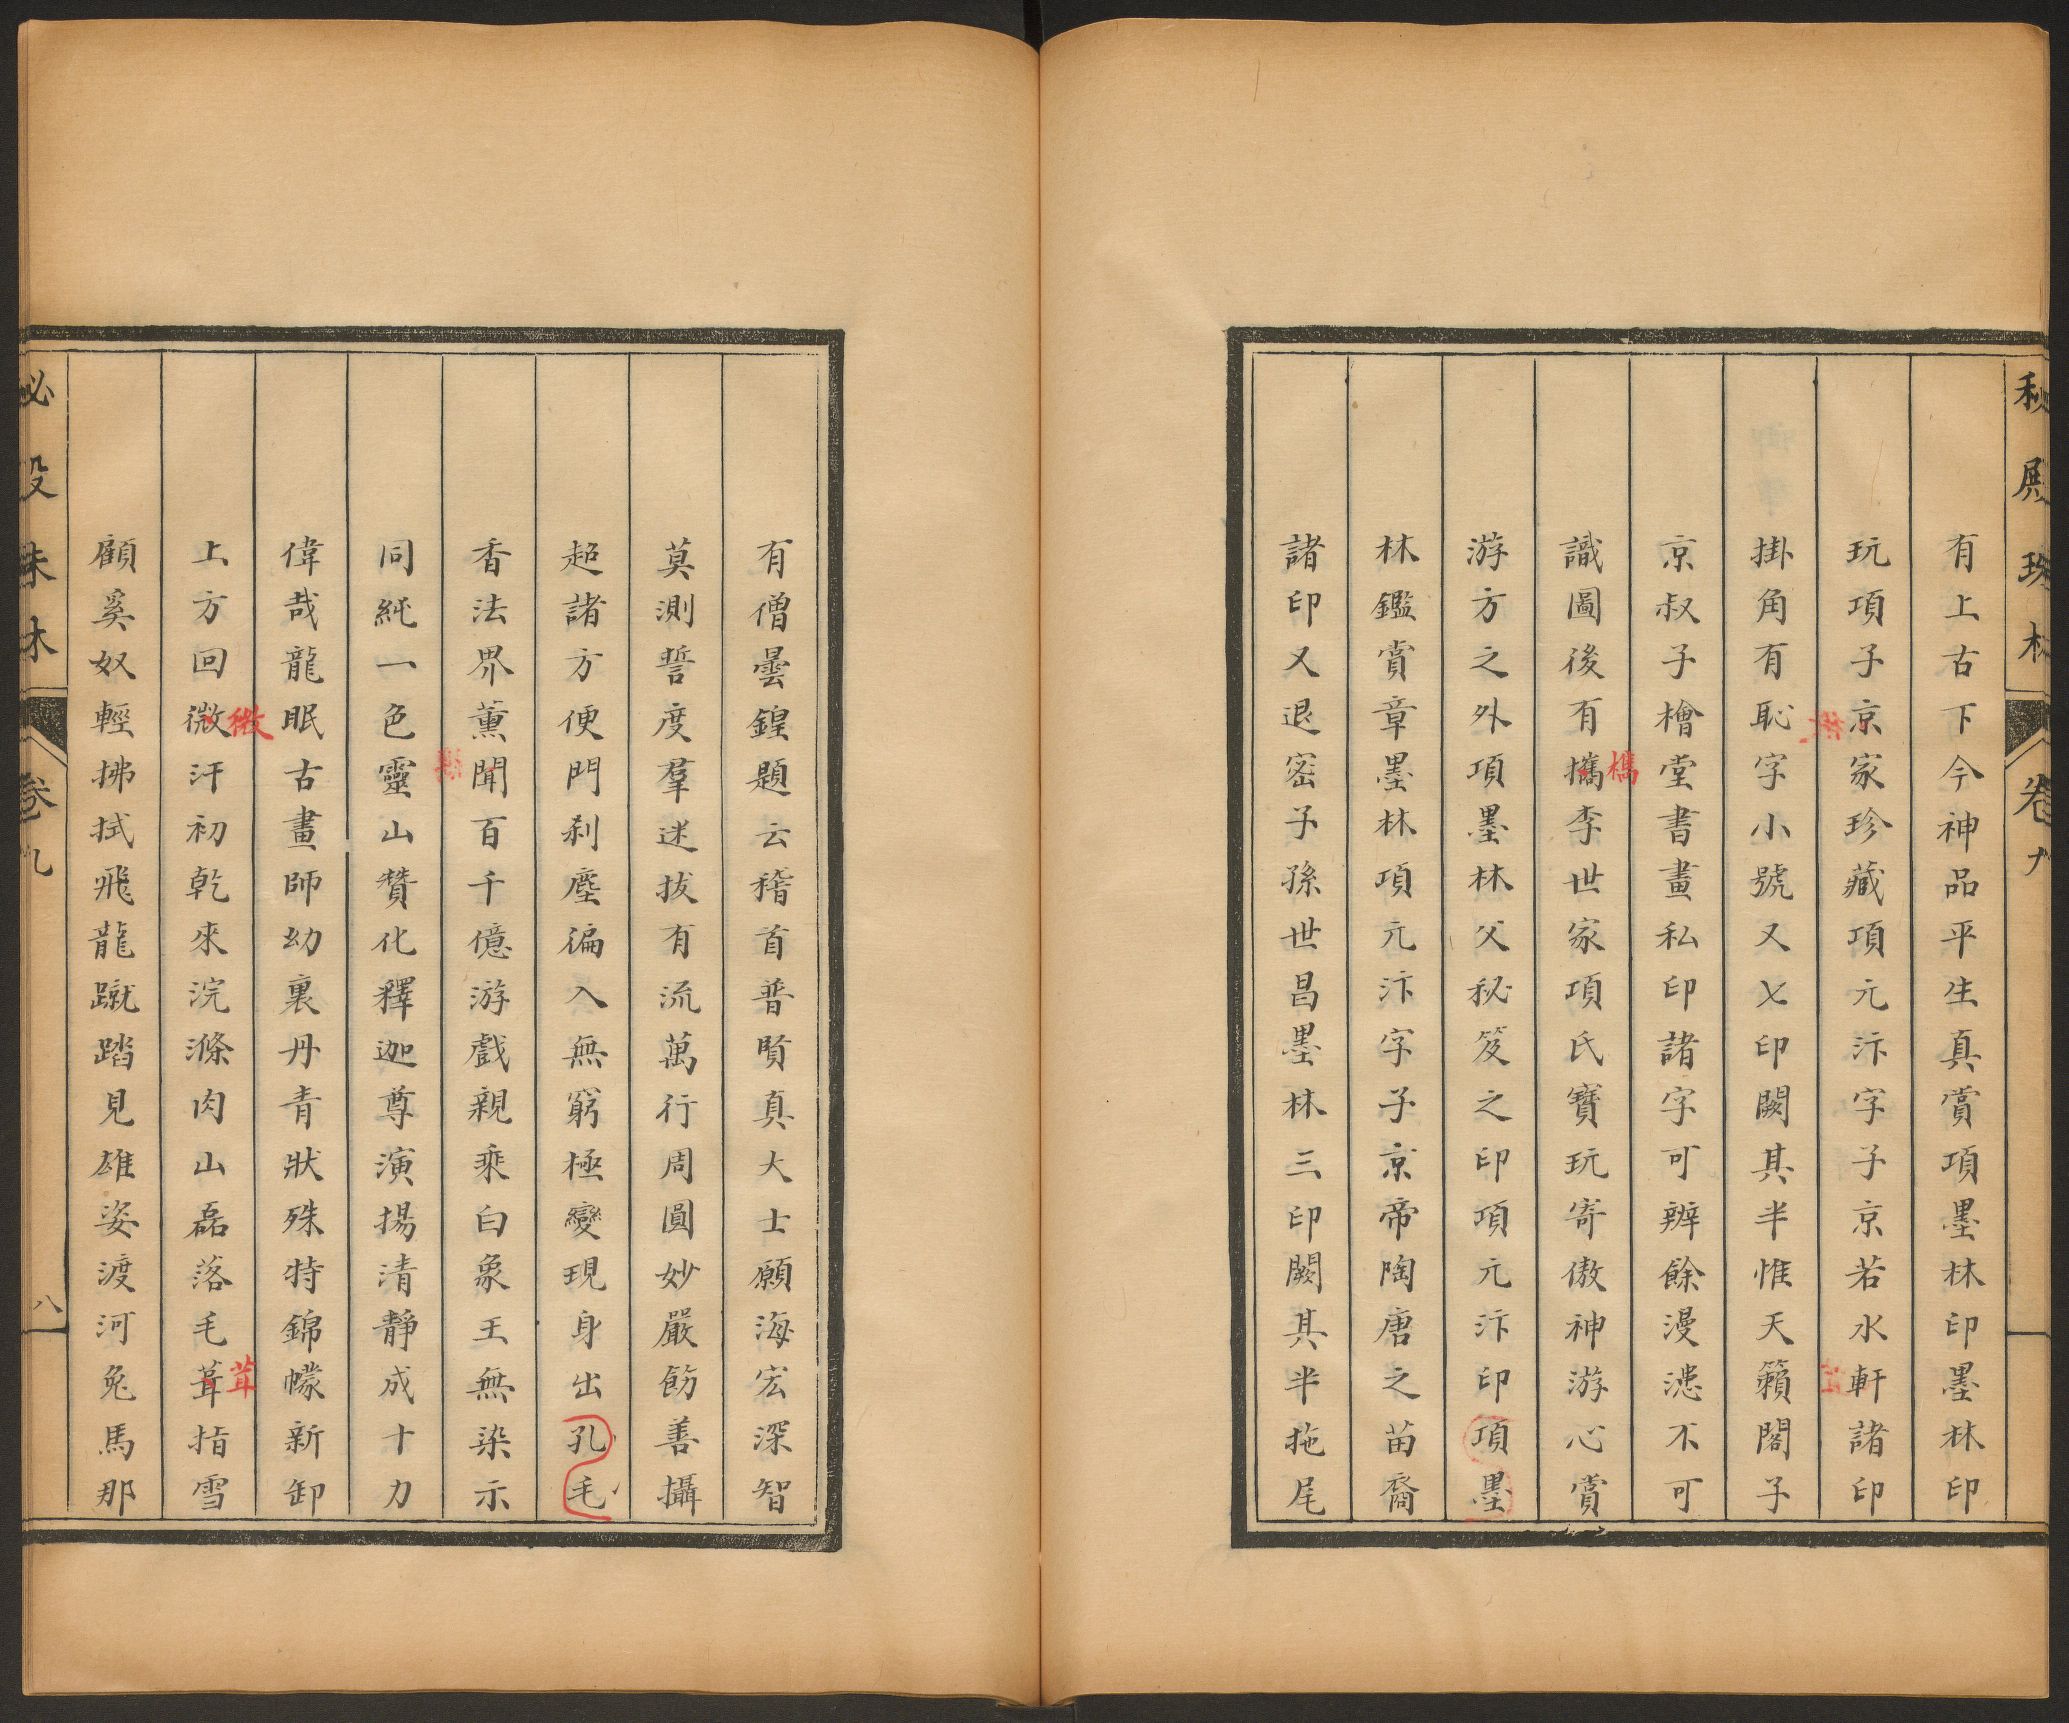 秘殿珠林
卷九
有上古下今神品平生真賞項墨林印墨林印
玩項子京家珍藏項元汴字子京若水軒諸印
掛角有恥字小號又七印闕其半惟天籟閣子
京叔子檜堂書畫私印諸字可辨餘漫漶不可
識圖後有㩦李世家項氏寶玩寄傲神游心賞
檇
游方之外項墨林父秘笈之印項元汴印項墨
林鑑賞章墨林項元汴字子京帝陶唐之苗裔
諸印又退密子孫世昌墨林三印闕其半拖尾
有僧曇鍠題云稽首普賢真大士願海宏深智
莫測誓度羣迷拔有流萬行周圓妙嚴飭善攝
超諸方便門刹塵徧入無窮極變現身出孔毛
香法界薰聞百千億游戲親乘白象王無染示
同純一色靈山贊化釋迦尊演揚清靜成十力
偉哉龍眠古畫師幼裏丹青狀殊特錦幪新卸
上方回微汗初乾來浣滌肉山磊落毛葺指雪
微
茸
顧奚奴輕拂拭飛龍蹴踏見雄姿渡河兔馬那
秘殿珠林
卷九
八